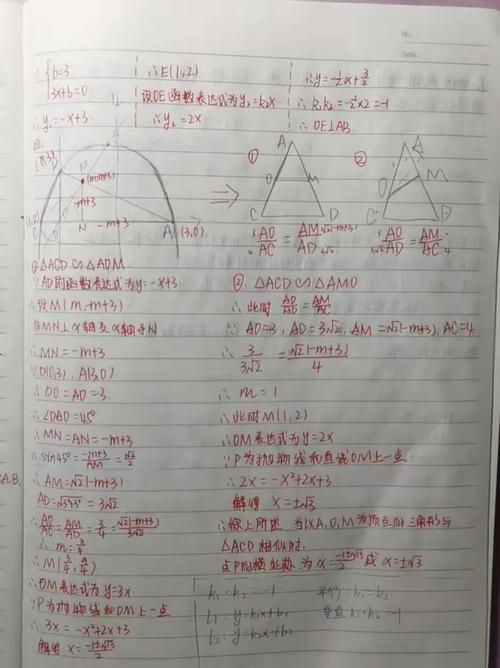 No.
Date.
∴ { b=3
3x+b=0
∴ y₁=-x+3
∴ E(1,2)
设OE函数表达式为y₂=k₂x
∴ y₂=2x
∴ y=-½x+3/2
∴ k₁k₂=-½×2=-1
∴ OE⊥AB
M (m,-m+3)
-m+3
N -m+3
A (3,0)
⇒
①
A
O M
C D
3 AO/AC = AM/AD √2(-m+3)
②
A
C D
3 AO/AD = AM/AC 4
3√2
①. △ACD∽△AOM
∵AD的函数表达式为y=-x+3
∴设M(m,-m+3)
作MN⊥x轴交x轴于N
∴MN=-m+3
∵D(0,3), A(3,0)
∴DO=AO=3
∴∠DAO=45°
∴MN=AN=-m+3
∴sin45°=-m+3/AM=√2/2
∴AM=√2(-m+3)
AD=√3²+3²=3√2
∴AO/AC=AM/AD=3/4=√2(-m+3)/3√2
∴m=3/4
∴M(3/4,9/4)
∴OM表达式为y=3x
∵P为抛物线和OM上一点
∴3x=-x²+2x+3
解得 x=-1±√13/2
②. △ACD∽△AMO
∴此时 AO/AD=AM/AC
∵AO=3, AD=3√2, AM=√2(-m+3), AC=4
∴3/3√2=√2(-m+3)/4
∴m=1
∴此时M(1,2)
∴OM表达式为y=2x
∵P为抛物线和直线OM上一点
∴2x=-x²+2x+3
解得 x=±√3
∴综上所述,当以A,O,M为顶点的三角形与
△ACD相似时.
点P的横坐标为x=-1±√13/2或x=±√3
k₁·k₂=-1
l₁: y=k₁x+b₁
l₂: y=k₂x+b₂
平行 k₁=k₂
垂直 k₁·k₂=-1